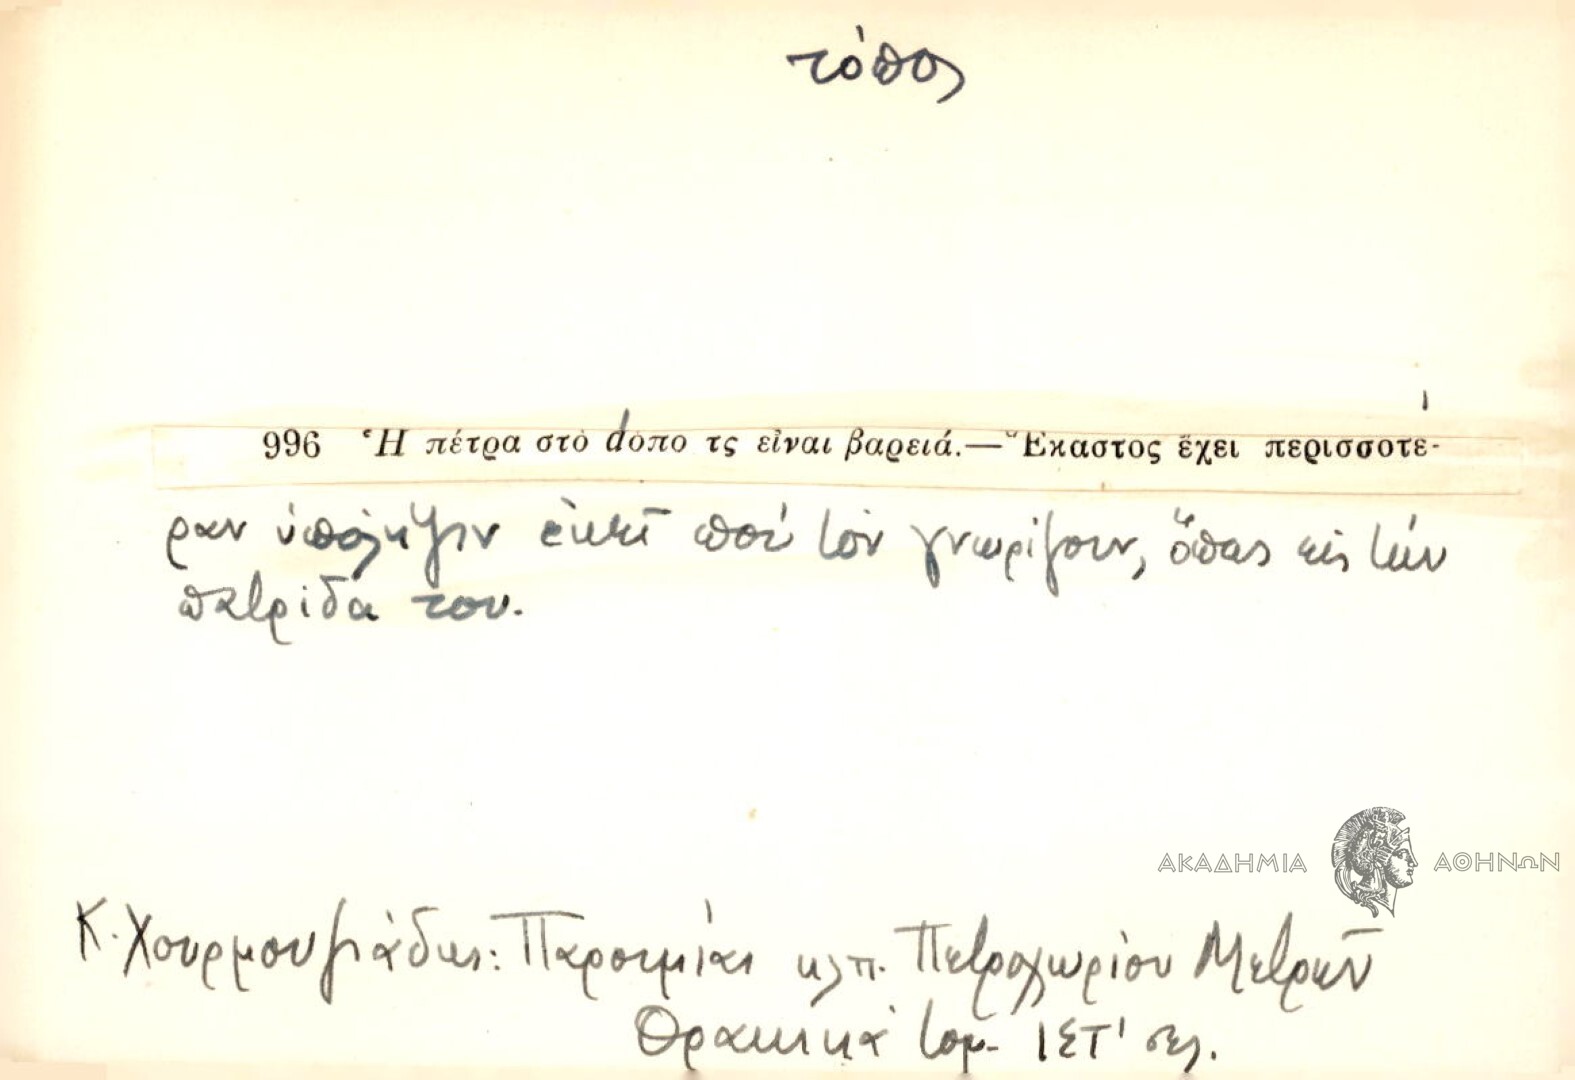 τόπος
996 Ἡ πέτρα στὸ dόπο τς εἶναι βαρειά.—Ἕκαστος ἔχει περισσοτέ-
ραν ὑπόληψιν ἐκεῖ ποὺ τὸν γνωρίζουν, ὅπως εἰς τὴν
πατρίδα του.
ΑΚΑΔΗΜΙΑ ΑΘΗΝΩΝ
Κ. Χουρμουζιάδης: Παροιμίαι κλπ. Πετροχωρίου Μετρῶν
Θρακικὰ τομ. ΙΣΤ' σελ.